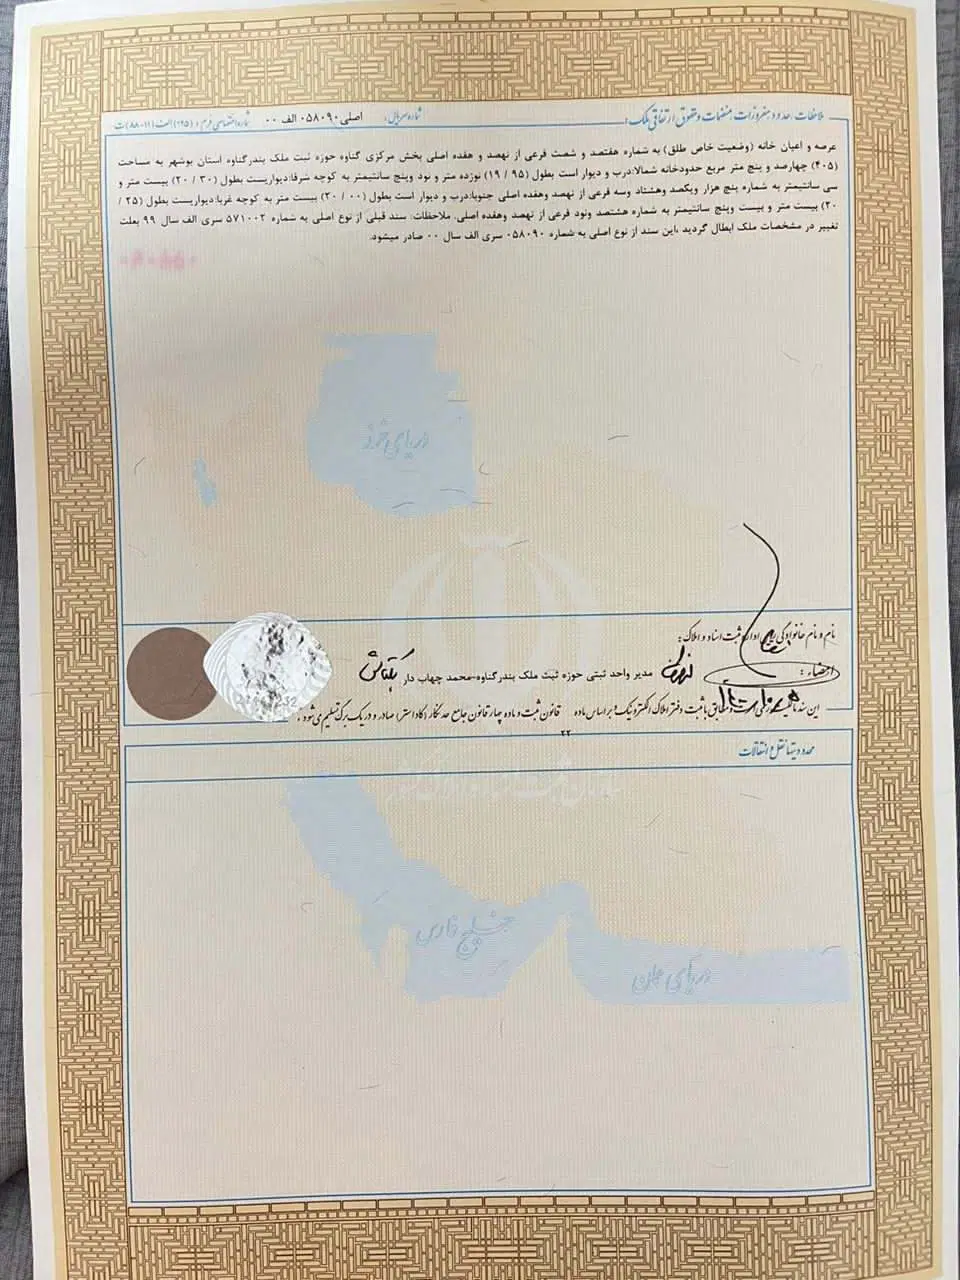 ملاحظات، حدود، مفروزات، منضمات و حقوق ارتفاقی ملک: شماره سریال: اصلی ۰۵۸۰۹۰ الف ۰۰ شماره اختصاصی فرم: (۱۲۵) الف (۱۱-۸۸) ت
عرصه و اعیان خانه (وضعیت خاص طلق) به شماره هفتصد و شصت فرعی از نهصد و هفده اصلی بخش مرکزی گناوه حوزه ثبت ملک بندرگناوه استان بوشهر به مساحت
(۴۰۵) چهارصد و پنج متر مربع حدودخانه شمالا:درب و دیوار است بطول (۹۵ / ۱۹) نوزده متر و نود وپنج سانتیمتر به کوچه شرقا:دیواریست بطول (۳۰ / ۲۰) بیست متر و
سی سانتیمتر به شماره پنج هزار ویکصد وهشتاد وسه فرعی از نهصد وهفده اصلی جنوبا:درب و دیوار است بطول (۰۰ / ۲۰) بیست متر به کوچه غربا:دیواریست بطول (۲۵ /
۲۰) بیست متر و بیست وپنج سانتیمتر به شماره هشتصد ونود فرعی از نهصد وهفده اصلی. ملاحظات: سند قبلی از نوع اصلی به شماره ۵۷۱۰۰۲ سری الف سال ۹۹ بعلت
تغییر در مشخصات ملک ابطال گردید ،این سند از نوع اصلی به شماره ۰۵۸۰۹۰ سری الف سال ۰۰ صادر میشود.
۰۵۸۰۹۰
دریای خزر
نام و نام خانوادگی رییس اداره ثبت اسناد و املاک:
امضاء: مدیر واحد ثبتی حوزه ثبت ملک بندرگناوه-محمد چهاب دار
این سند مطابق با ثبت دفتر املاک الکترونیک بر اساس ماده ۲۲ قانون ثبت و ماده چهار قانون جامع حدنگار (کاداستر) صادر و در یک برگ تسلیم می‌شود.
محدودیتها، نقل و انتقالات
خلیج فارس
دریای عمان